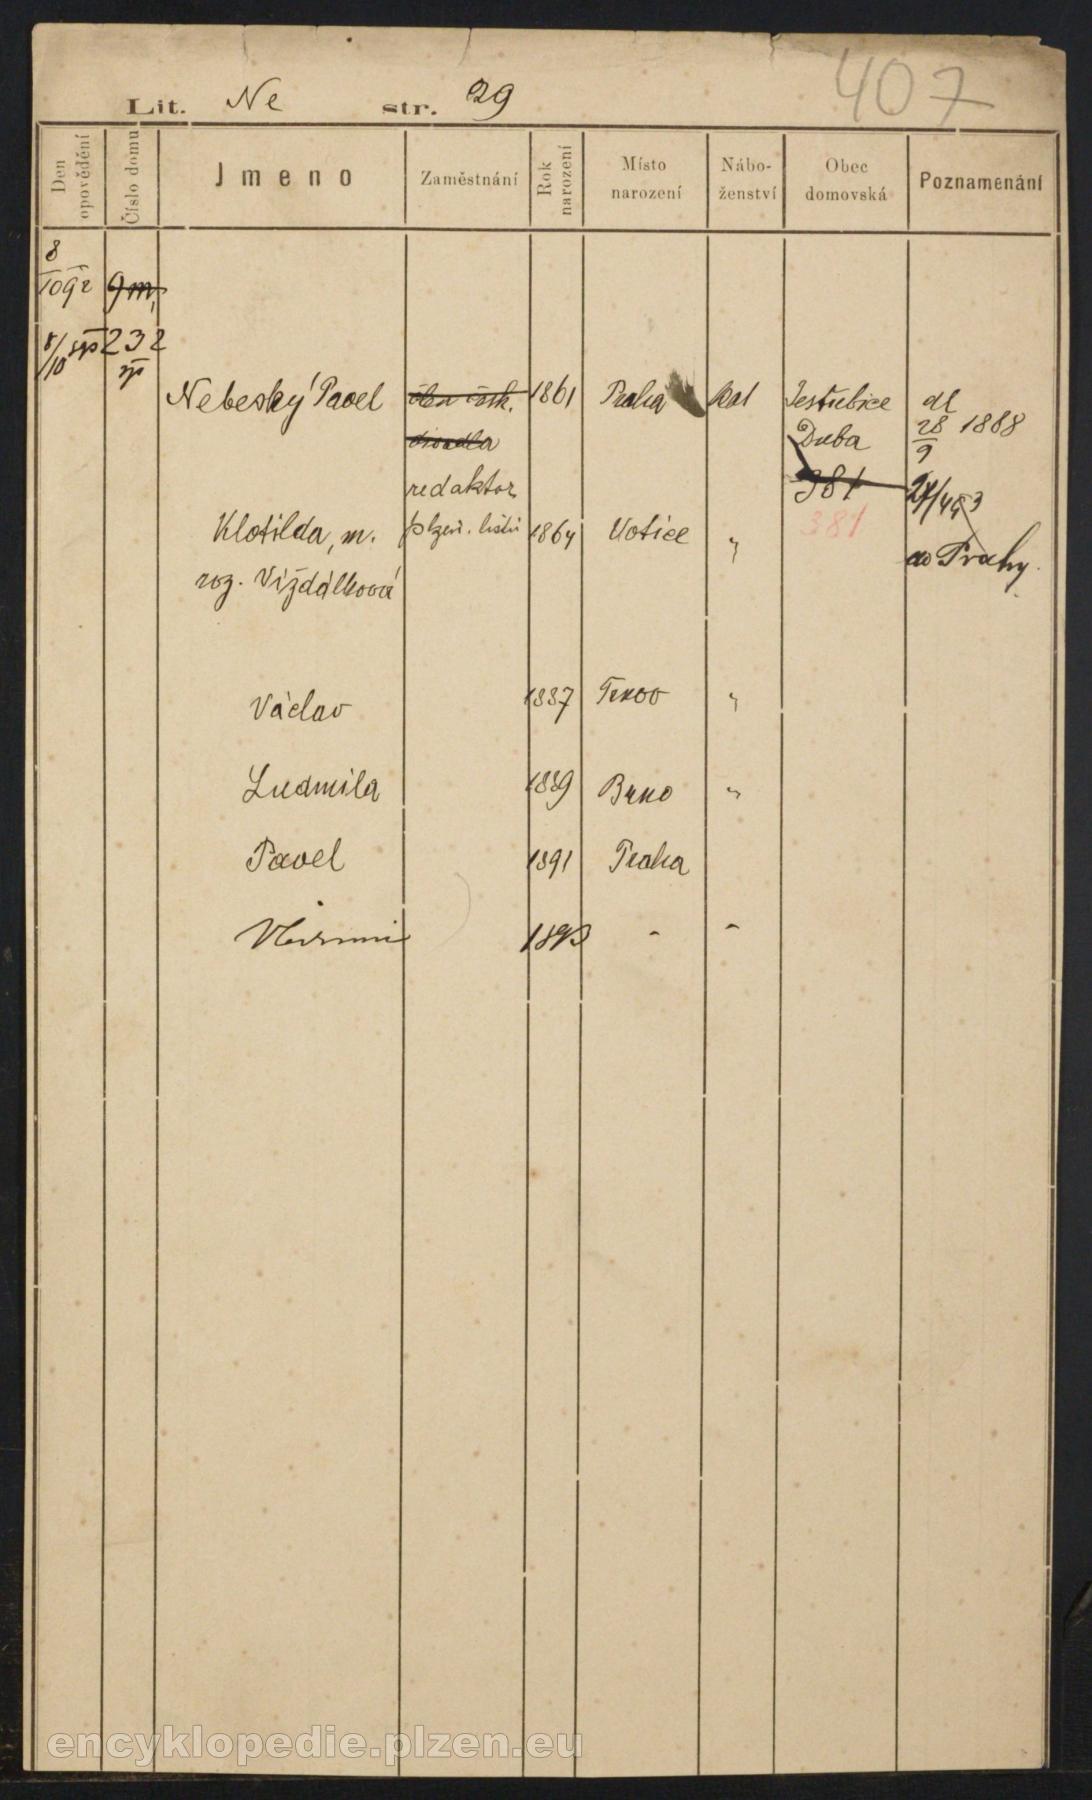 407
Lit. Ne str. 29
Den opovědění
Číslo domu
Jmeno
Zaměstnání
Rok narození
Místo narození
Nábo-ženství
Obec domovská
Poznamenání
8
1092 9 m,
8/10 232
Nebeský Pavel člen česk. 1861 Praha kat Jestřebice dl 28/9 1888
divadla Duba
redaktor 381 27/4 93
Klotilda, m. plzeň. listů 1864 Votice " 381
roz. Viždálková do Prahy.
Václav 1887 "
Ludmila 1889 Brno "
Pavel 1891 Praha
1893 " "
encyklopedie.plzen.eu